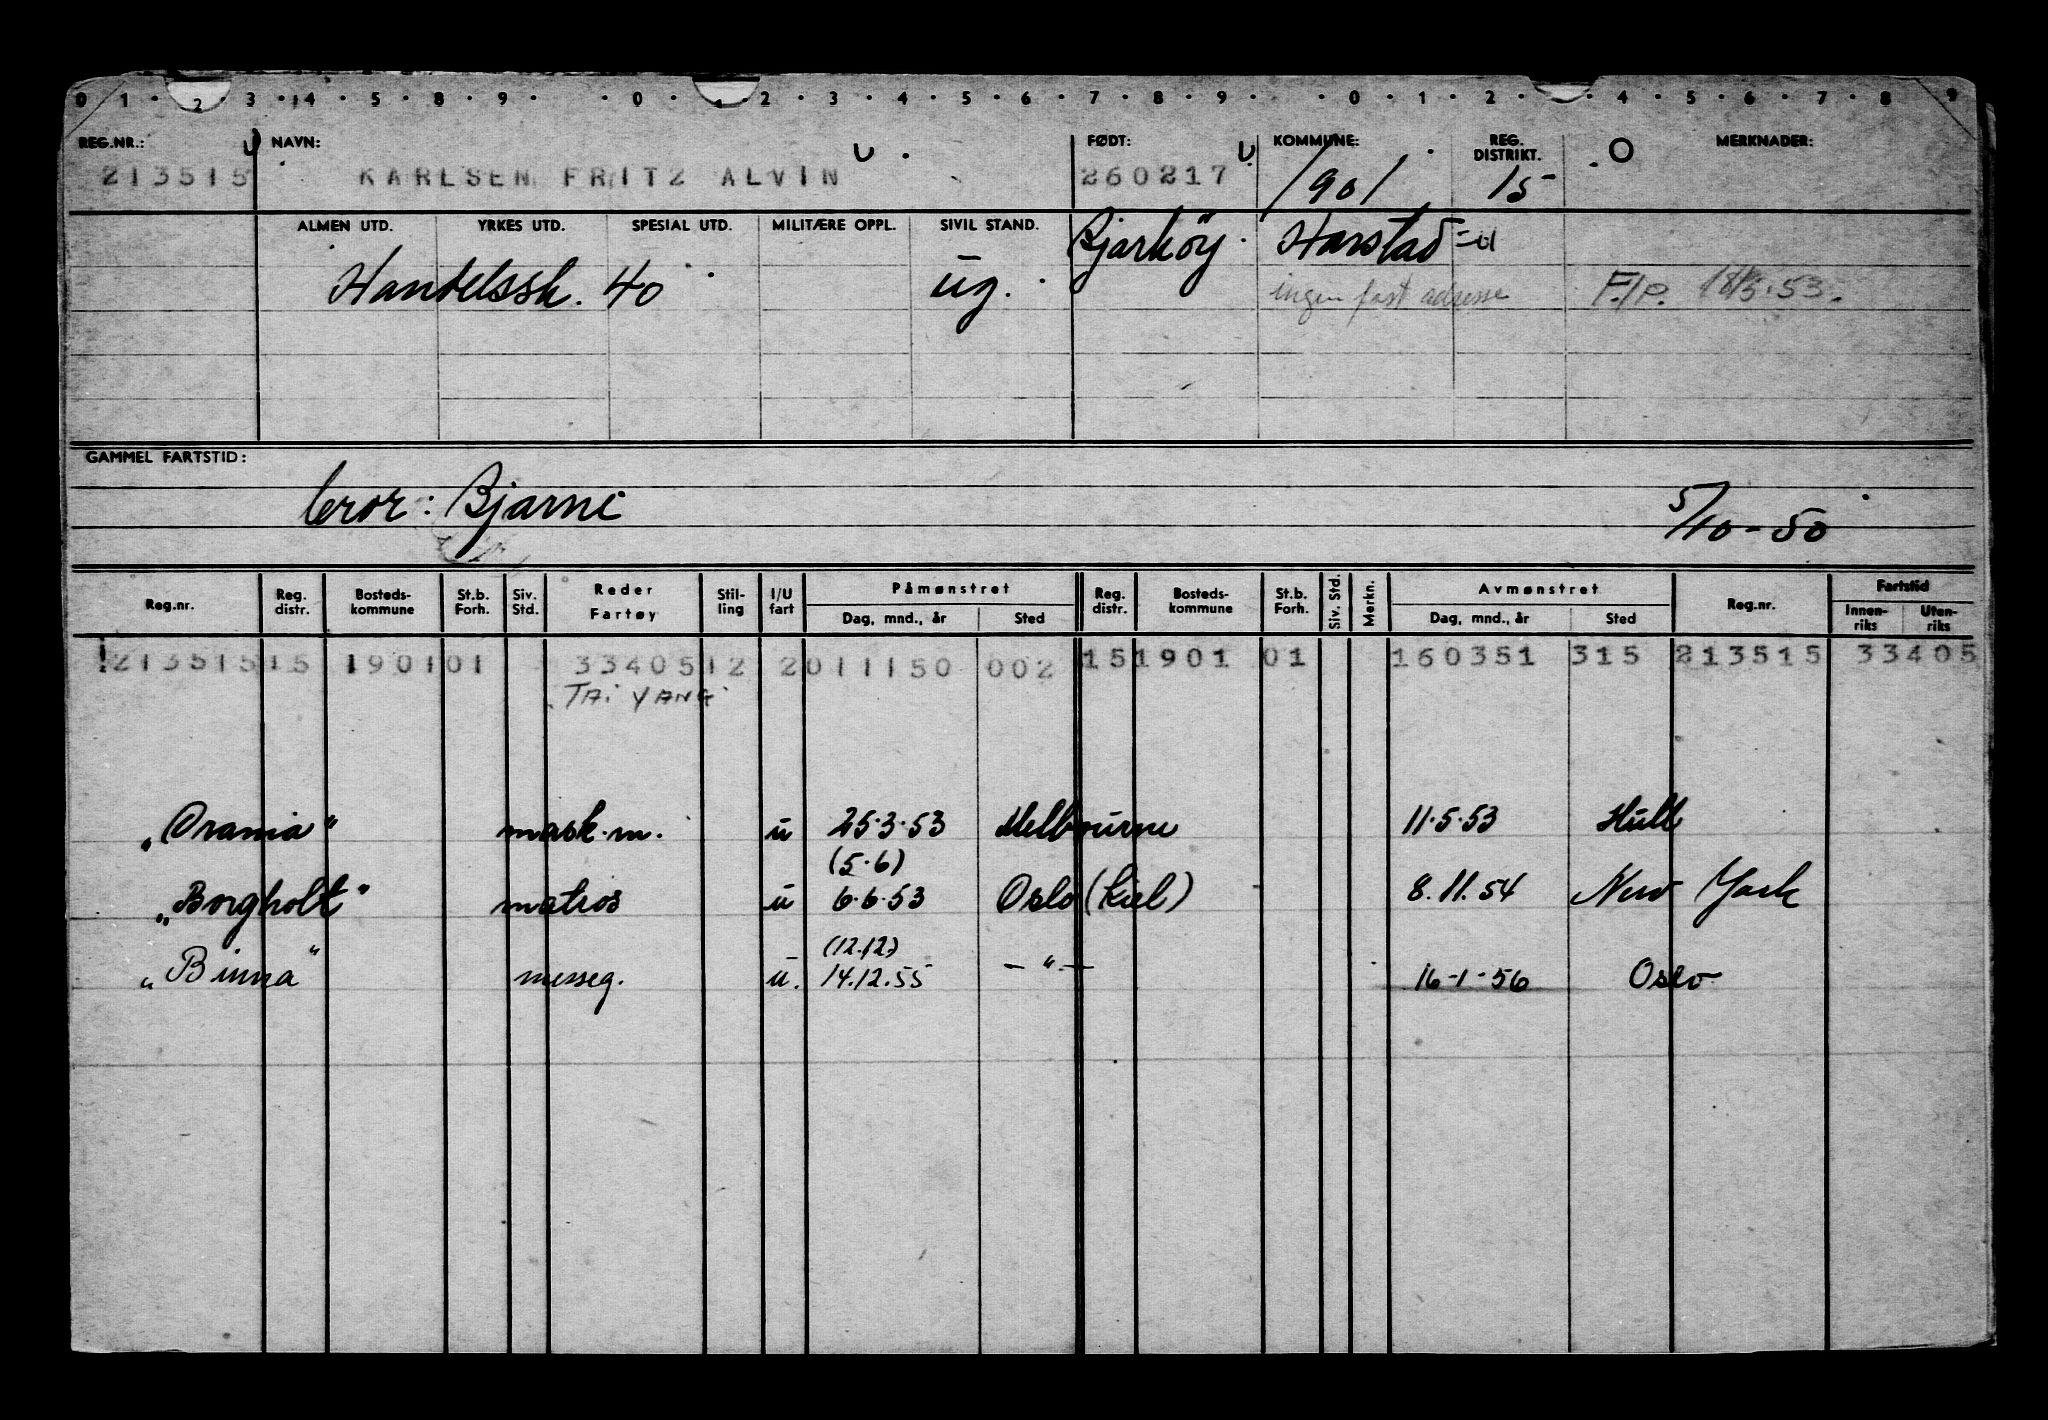 0 1 2 3 4 5 8 9 0 1 2 3 4 5 6 7 8 9 0 1 2 4 5 6 7 8 9
REG.NR.: NAVN: FØDT: KOMMUNE: REG. DISTRIKT. MERKNADER:
213515 KARLSEN FRITZ ALVIN 260217 1901 15
ALMEN UTD. YRKES UTD. SPESIAL UTD. MILITÆRE OPPL. SIVIL STAND. Bjarköy Harstad
Handelssk. 40 ug. ingen fast adresse F./P. 18/5.53.
GAMMEL FARTSTID:
bror: Bjarne 5/10-50
Reg.nr. Reg. distr. Bosteds-kommune St.b. Forh. Siv. Std. Reder Fartøy Stil-ling I/U fart Påmønstret Dag, mnd., år Sted Reg. distr. Bosteds-kommune St.b. Forh. Siv. Std. Merkn. Avmønstret Dag, mnd., år Sted Reg.nr. Fartstid Innen-riks Uten-riks
213515 15 1901 01 33405 12 2 011150 002 15 1901 01 160351 315 213515 33405
TAI YANG
„Orania" mask.m. u 25.3.53 Melbourne 11.5.53 Hull
(5.6)
„Borgholt" matros u 6.6.53 Oslo (Kiel) 8.11.54 New York
(12.12)
„Binna" messeg. u. 14.12.55 — " — 16-1-56 Oslo